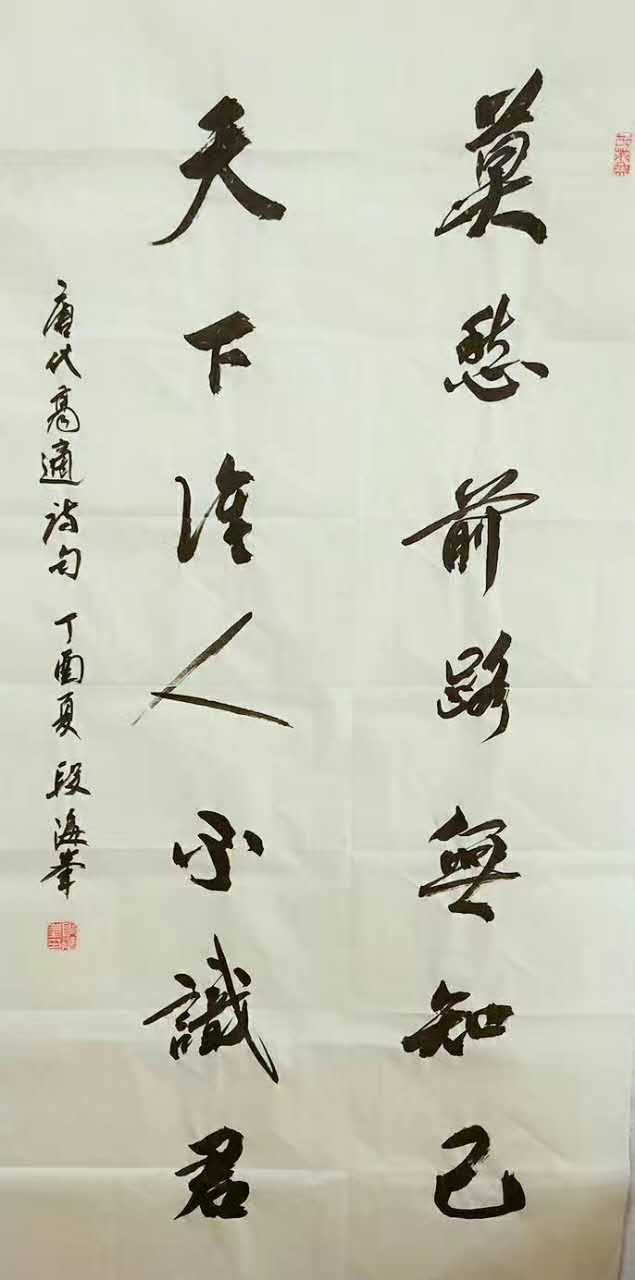 莫愁前路無知己
天下谁人不識君
唐代高適诗句 丁酉夏 段海峯